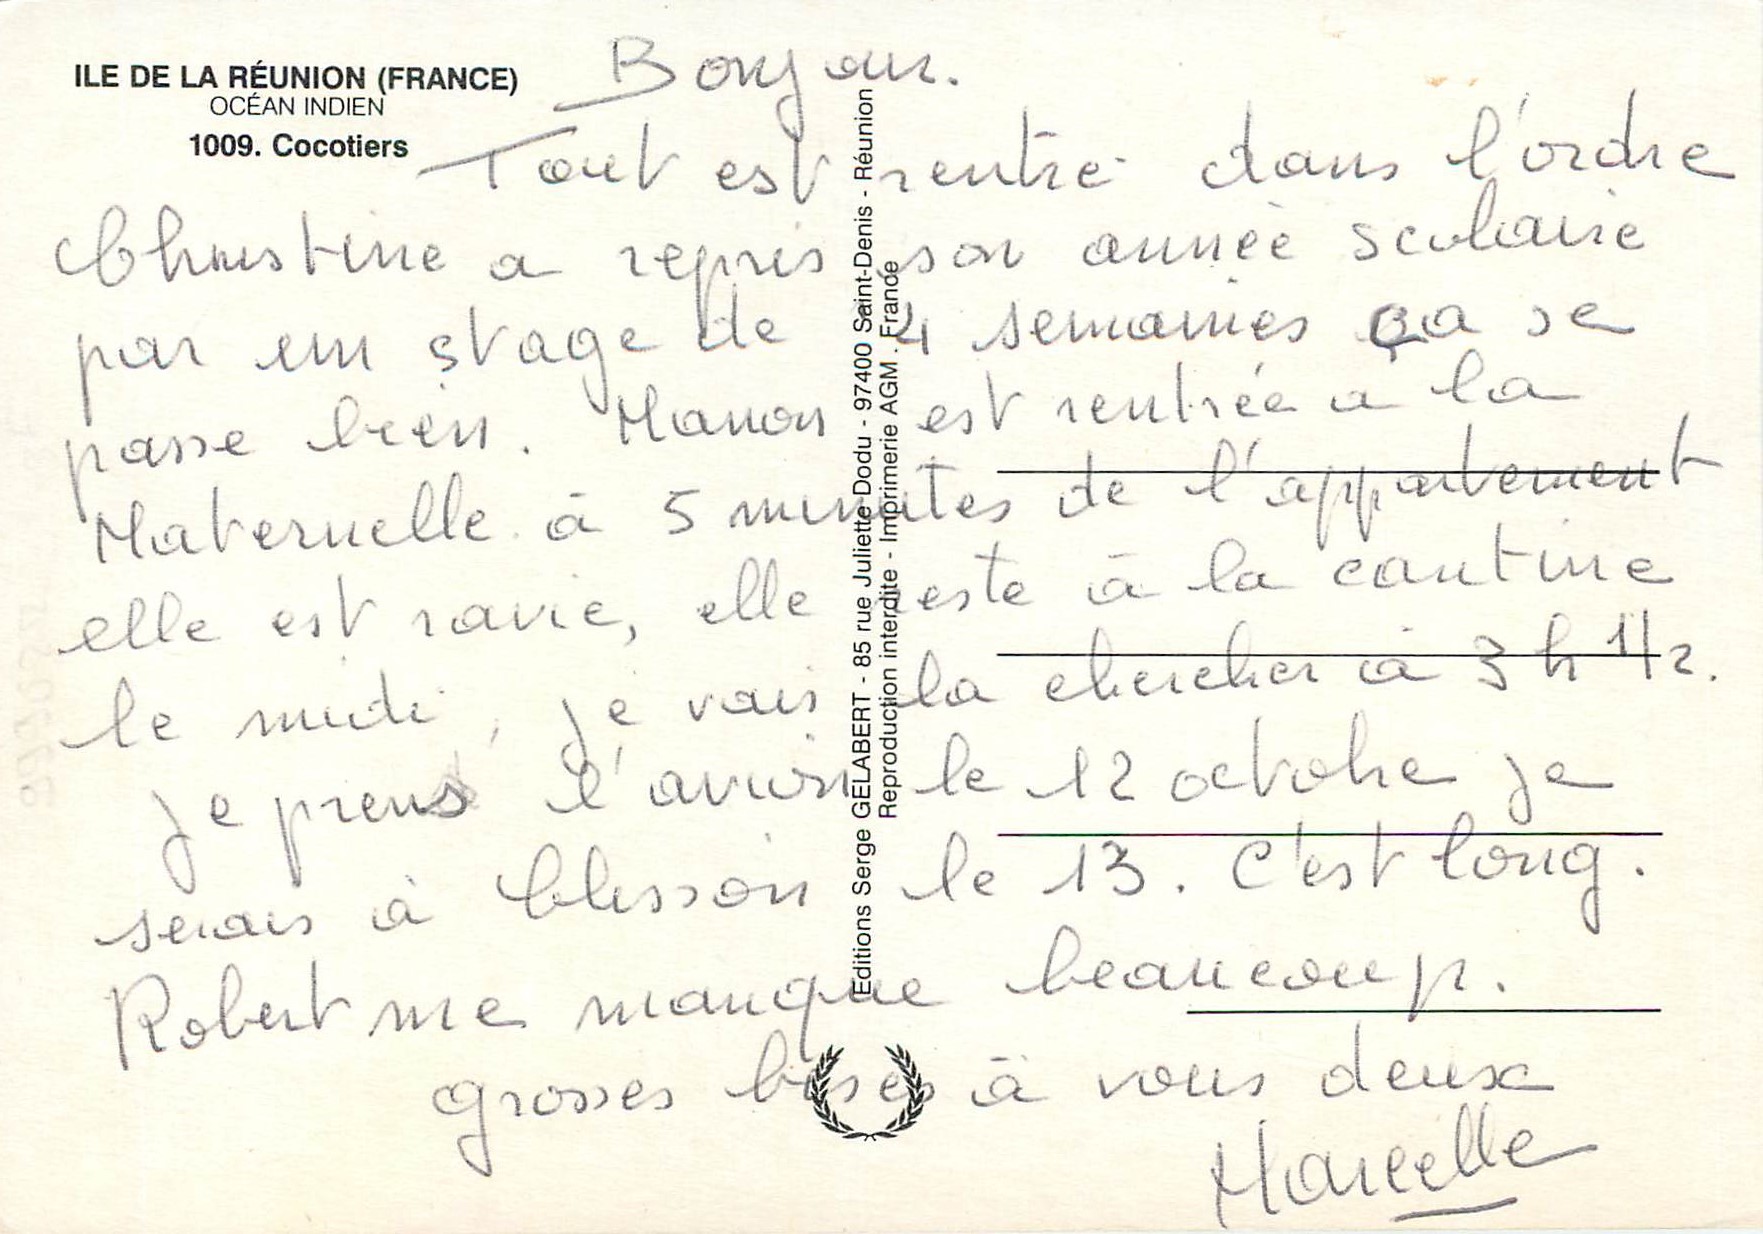 ILE DE LA RÉUNION (FRANCE)
OCÉAN INDIEN
1009. Cocotiers
Bonjour.
Tout est rentré dans l'ordre
Christine a repris son année scolaire
par un stage de 4 semaines ça se
passe bien. Manon est rentrée à la
Maternelle à 5 minutes de l'appartement
elle est ravie, elle reste à la cantine
le midi, je vais la chercher à 3 h 1/2.
Je prens l'avion le 12 octobre je
serais à Clisson le 13. C'est long.
Robert me manque beaucoup.
grosses bises à vous deux
Marcelle
Editions Serge GELABERT - 85 rue Juliette Dodu - 97400 Saint-Denis - Réunion
Reproduction interdite - Imprimerie AGM. France